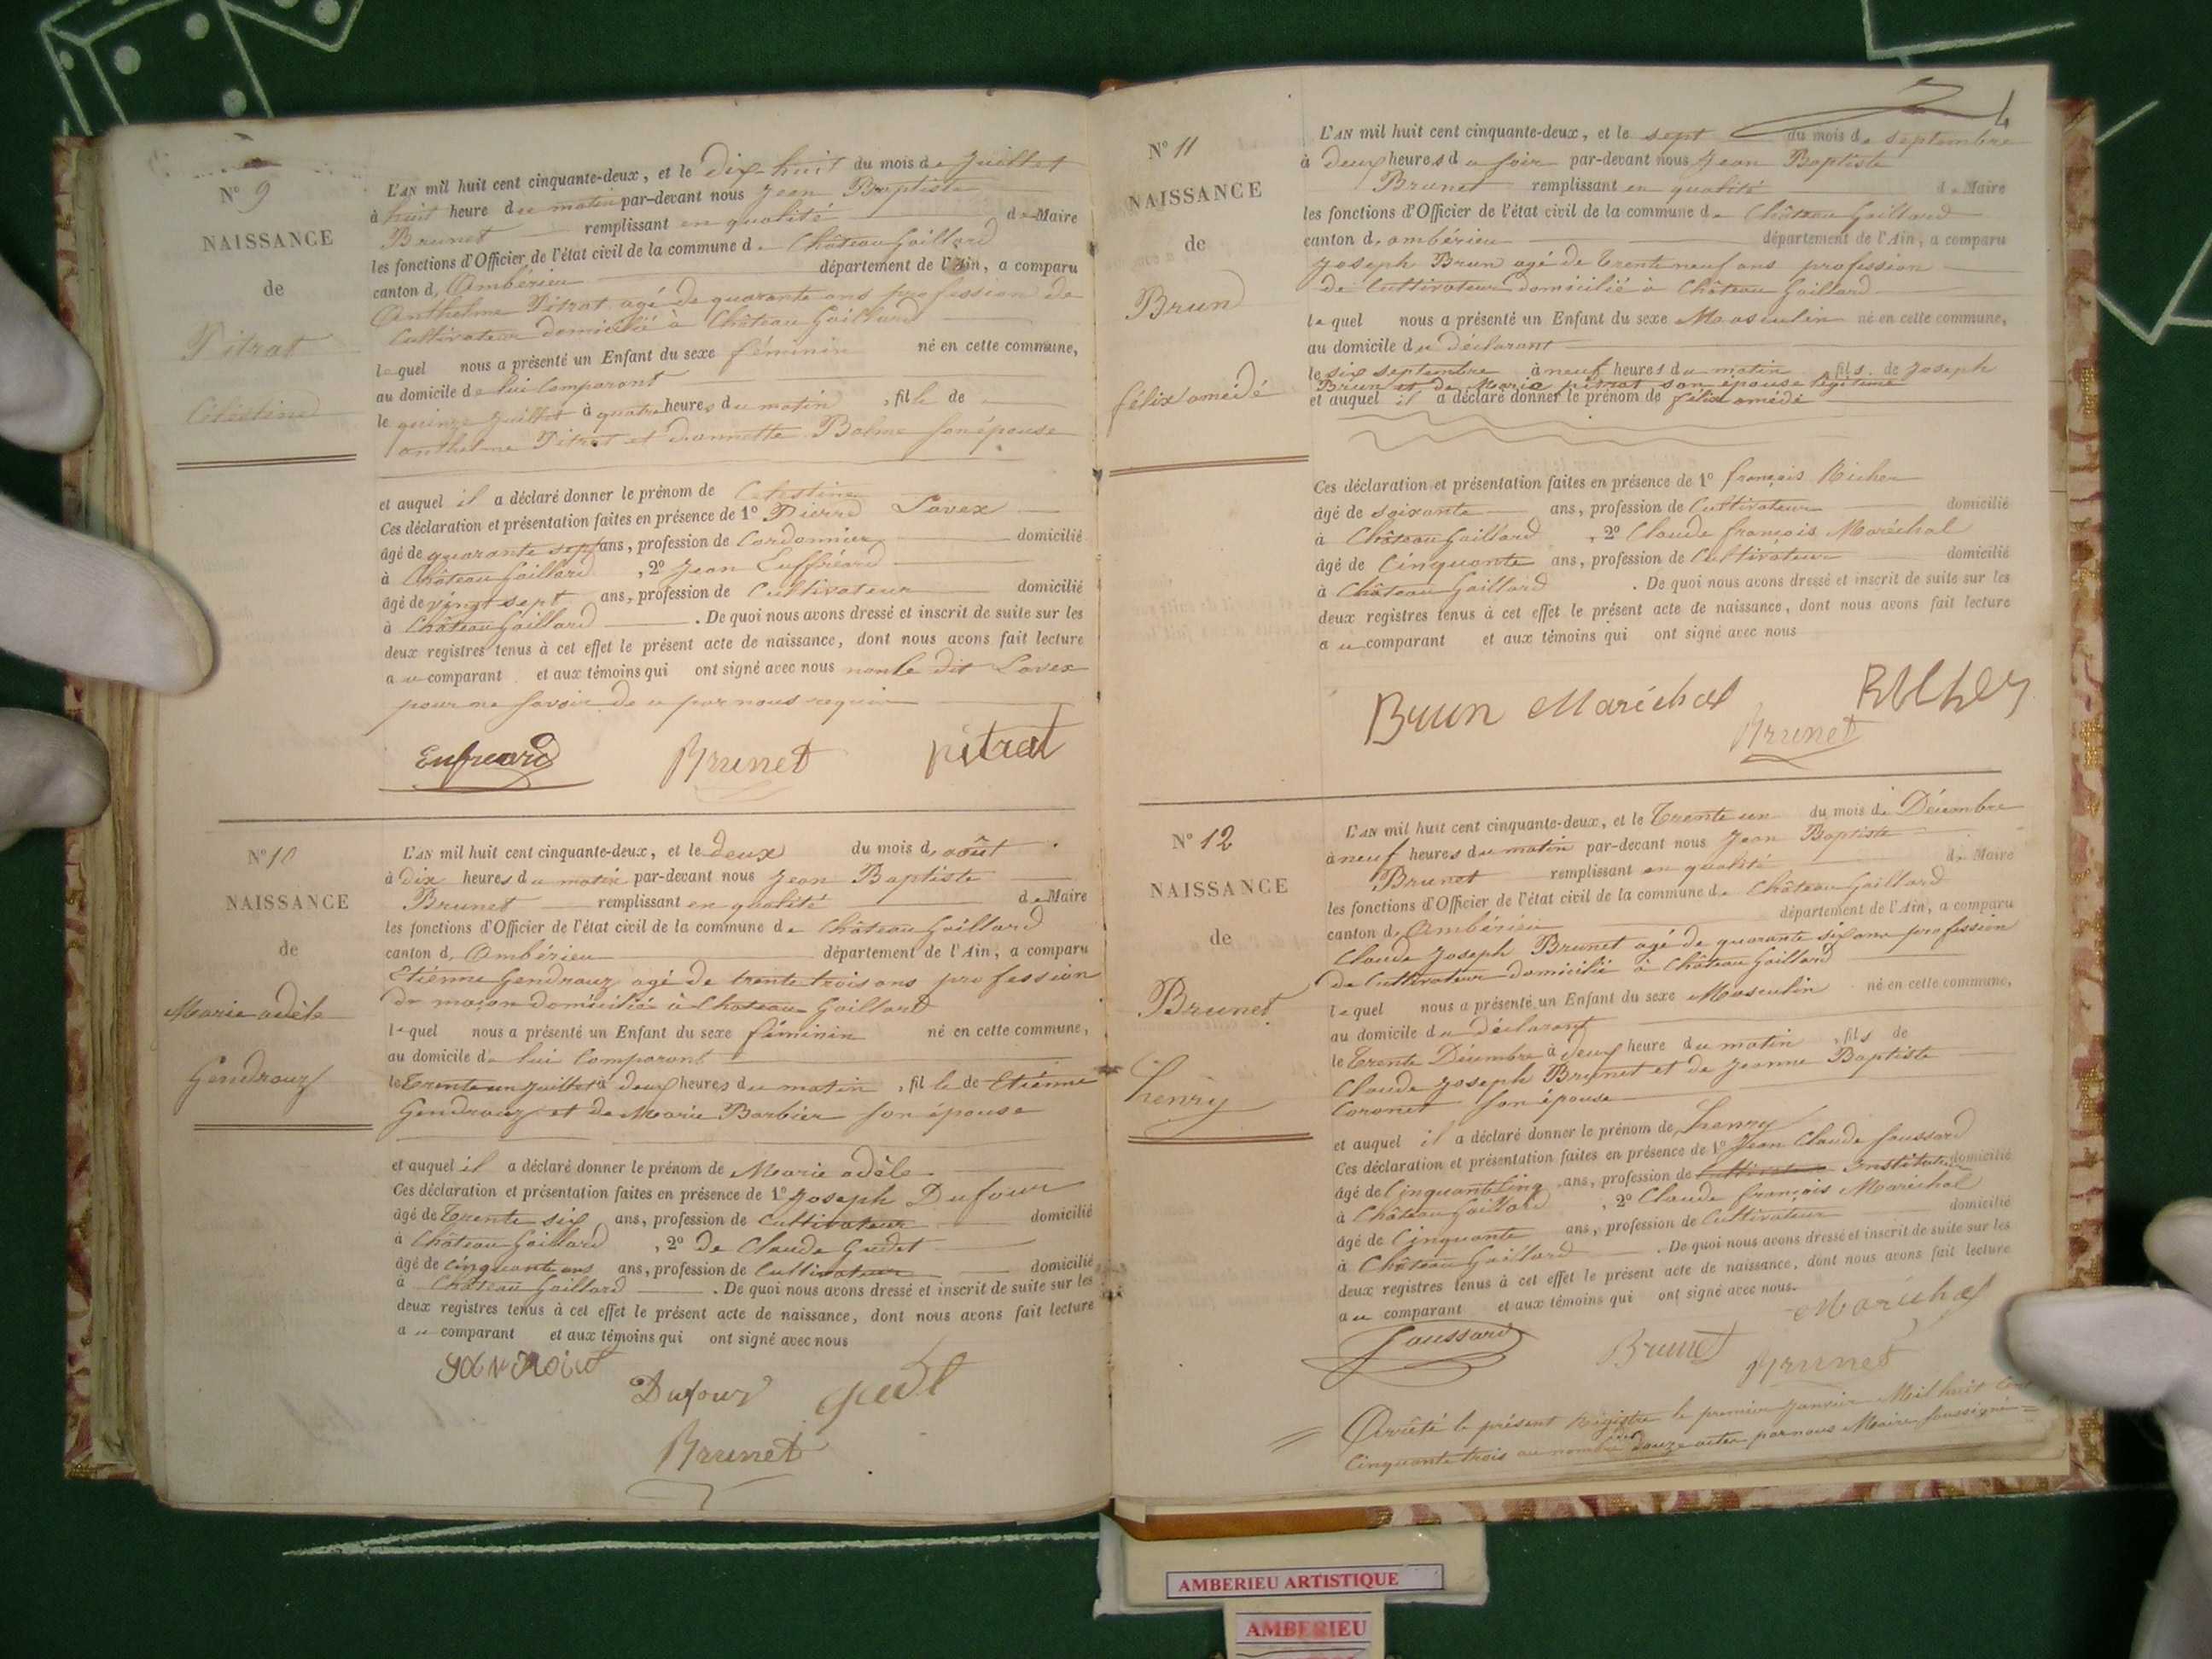 N° 9
NAISSANCE
de
Pitrat
Célestine
L'AN mil huit cent cinquante-deux, et le dix-huit du mois de Juillet
à huit heure du matin par-devant nous Jean Baptiste
Brunet remplissant en qualité de Maire
les fonctions d'Officier de l'état civil de la commune de Château Gaillard
canton d. Ambérieu département de l'Ain, a comparu
Anthelme Pitrat agé de quarante ans profession de
Cultivateur domicilié à Château Gaillard
lequel nous a présenté un Enfant du sexe féminin né en cette commune,
au domicile de lui Comparant
le quinze Juillet à quatre heures du matin , fille de
anthelme Pitrat et Jeannette Balme son épouse
et auquel il a déclaré donner le prénom de Célestine
Ces déclaration et présentation faites en présence de 1° Pierre Lavex
âgé de quarante sept ans, profession de Cordonnier domicilié
à Château Gaillard , 2° Jean
âgé de vingt sept ans, profession de Cultivateur domicilié
à Château Gaillard . De quoi nous avons dressé et inscrit de suite sur les
deux registres tenus à cet effet le présent acte de naissance, dont nous avons fait lecture
au comparant et aux témoins qui ont signé avec nous non le dit Lavex
pour ne savoir de ce par nous requis
Brunet pitrat
N° 10
NAISSANCE
de
Marie adèle
Gendraux
L'AN mil huit cent cinquante-deux, et le deux du mois d. août
à dix heures du matin par-devant nous Jean Baptiste
Brunet remplissant en qualité de Maire
les fonctions d'Officier de l'état civil de la commune de Château Gaillard
canton d. Ambérieu département de l'Ain, a comparu
Etiénne Gendraux agé de trente trois ans profession
de maçon domicilié à Chateau Gaillard
lequel nous a présenté un Enfant du sexe féminin né en cette commune,
au domicile de lui Comparant
le Trente un Juillet à deux heures du matin , fille de Etiénne
Gendraux et de Marie Barbier son épouse
et auquel il a déclaré donner le prénom de Marie adèle
Ces déclaration et présentation faites en présence de 1° Joseph Dufour
âgé de Trente six ans, profession de Cultivateur domicilié
à Château Gaillard , 2° de Claude Gudet
âgé de cinquante ans ans, profession de Cultivateur domicilié
à Château Gaillard . De quoi nous avons dressé et inscrit de suite sur les
deux registres tenus à cet effet le présent acte de naissance, dont nous avons fait lecture
au comparant et aux témoins qui ont signé avec nous
Dufour
Brunet
N° 11
NAISSANCE
de
Brun
félix amédé
L'AN mil huit cent cinquante-deux, et le sept du mois de septembre
à deux heures du soir par-devant nous Jean Baptiste
Brunet remplissant en qualité de Maire
les fonctions d'Officier de l'état civil de la commune de Château Gaillard
canton d. ambérieu département de l'Ain, a comparu
Joseph Brun agé de trente neuf ans profession
de Cultivateur domicilié à Château Gaillard
lequel nous a présenté un Enfant du sexe Masculin né en cette commune,
au domicile du déclarant
le six septembre à neuf heures du matin fils de Joseph
Brun et de Marie pitrat son épouse légitime
et auquel il a déclaré donner le prénom de félix amédé
Ces déclaration et présentation faites en présence de 1° françois Richer
âgé de soixante ans, profession de Cultivateur domicilié
à Château Gaillard , 2° Claude françois Maréchal
âgé de Cinquante ans, profession de Cultivateur domicilié
à Château Gaillard . De quoi nous avons dressé et inscrit de suite sur les
deux registres tenus à cet effet le présent acte de naissance, dont nous avons fait lecture
au comparant et aux témoins qui ont signé avec nous
Brun Maréchal Richer
Brunet
N° 12
NAISSANCE
de
Brunet
henry
L'AN mil huit cent cinquante-deux, et le Trente un du mois de Décembre
à neuf heures du matin par-devant nous Jean Baptiste
Brunet remplissant en qualité de Maire
les fonctions d'Officier de l'état civil de la commune de Château Gaillard
canton d. Ambérieu département de l'Ain, a comparu
Claude Joseph Brunet agé de quarante six ans profession
de Cultivateur domicilié à Château Gaillard
lequel nous a présenté un Enfant du sexe Masculin né en cette commune,
au domicile du déclarant
le Trente Décembre à deux heure du matin , fils de
Claude Joseph Brunet et de Jeanne Baptiste
Coronet son épouse
et auquel il a déclaré donner le prénom de henry
Ces déclaration et présentation faites en présence de 1° Jean Claude Joussard
âgé de Cinquante cinq ans, profession de Cultivateur Instituteur domicilié
à Château Gaillard , 2° Claude françois Maréchal
âgé de Cinquante ans, profession de Cultivateur domicilié
à Château Gaillard . De quoi nous avons dressé et inscrit de suite sur les
deux registres tenus à cet effet le présent acte de naissance, dont nous avons fait lecture
au comparant et aux témoins qui ont signé avec nous.
Maréchal
Joussard Brunet Brunet
Arrêté le présent Régistre le premier Janvier Mil huit Cent
Cinquante trois au nombre de douze actes par nous Maire soussigné
AMBERIEU ARTISTIQUE
AMBERIEU